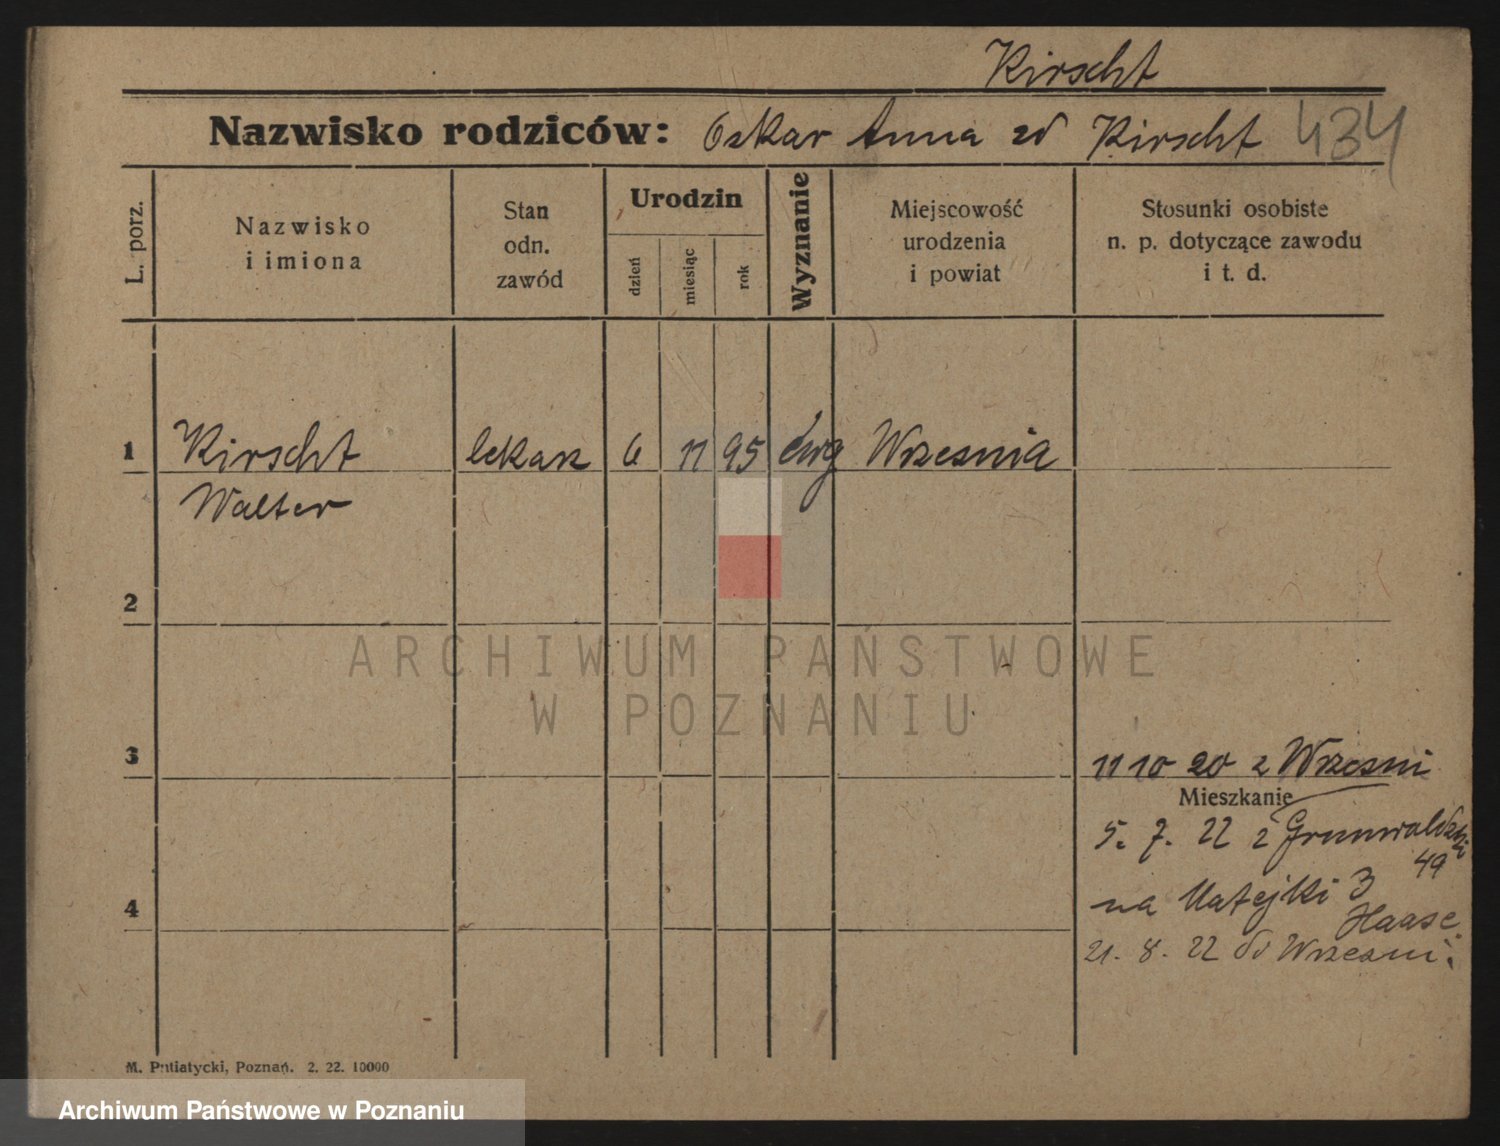 Kirscht
Nazwisko rodziców: Oskar Anna zd Kirscht 434
L. porz.
Nazwisko
i imiona
Stan
odn.
zawód
Urodzin
dzień
miesiąc
rok
Wyznanie
Miejscowość
urodzenia
i powiat
Stosunki osobiste
n. p. dotyczące zawodu
i t. d.
1 Kirscht lekarz 6 11 95 ewg Wrzesnia
Walter
2
3
11 10 20 z Wrzesni
Mieszkanie
5. 7. 22 z Grunwaldzki
49
na Matejki 3
4
Haase
21. 8. 22 do Wrzesni.
M. Putiatycki, Poznań. 2. 22. 10000
ARCHIWUM PAŃSTWOWE
W POZNANIU
Archiwum Państwowe w Poznaniu